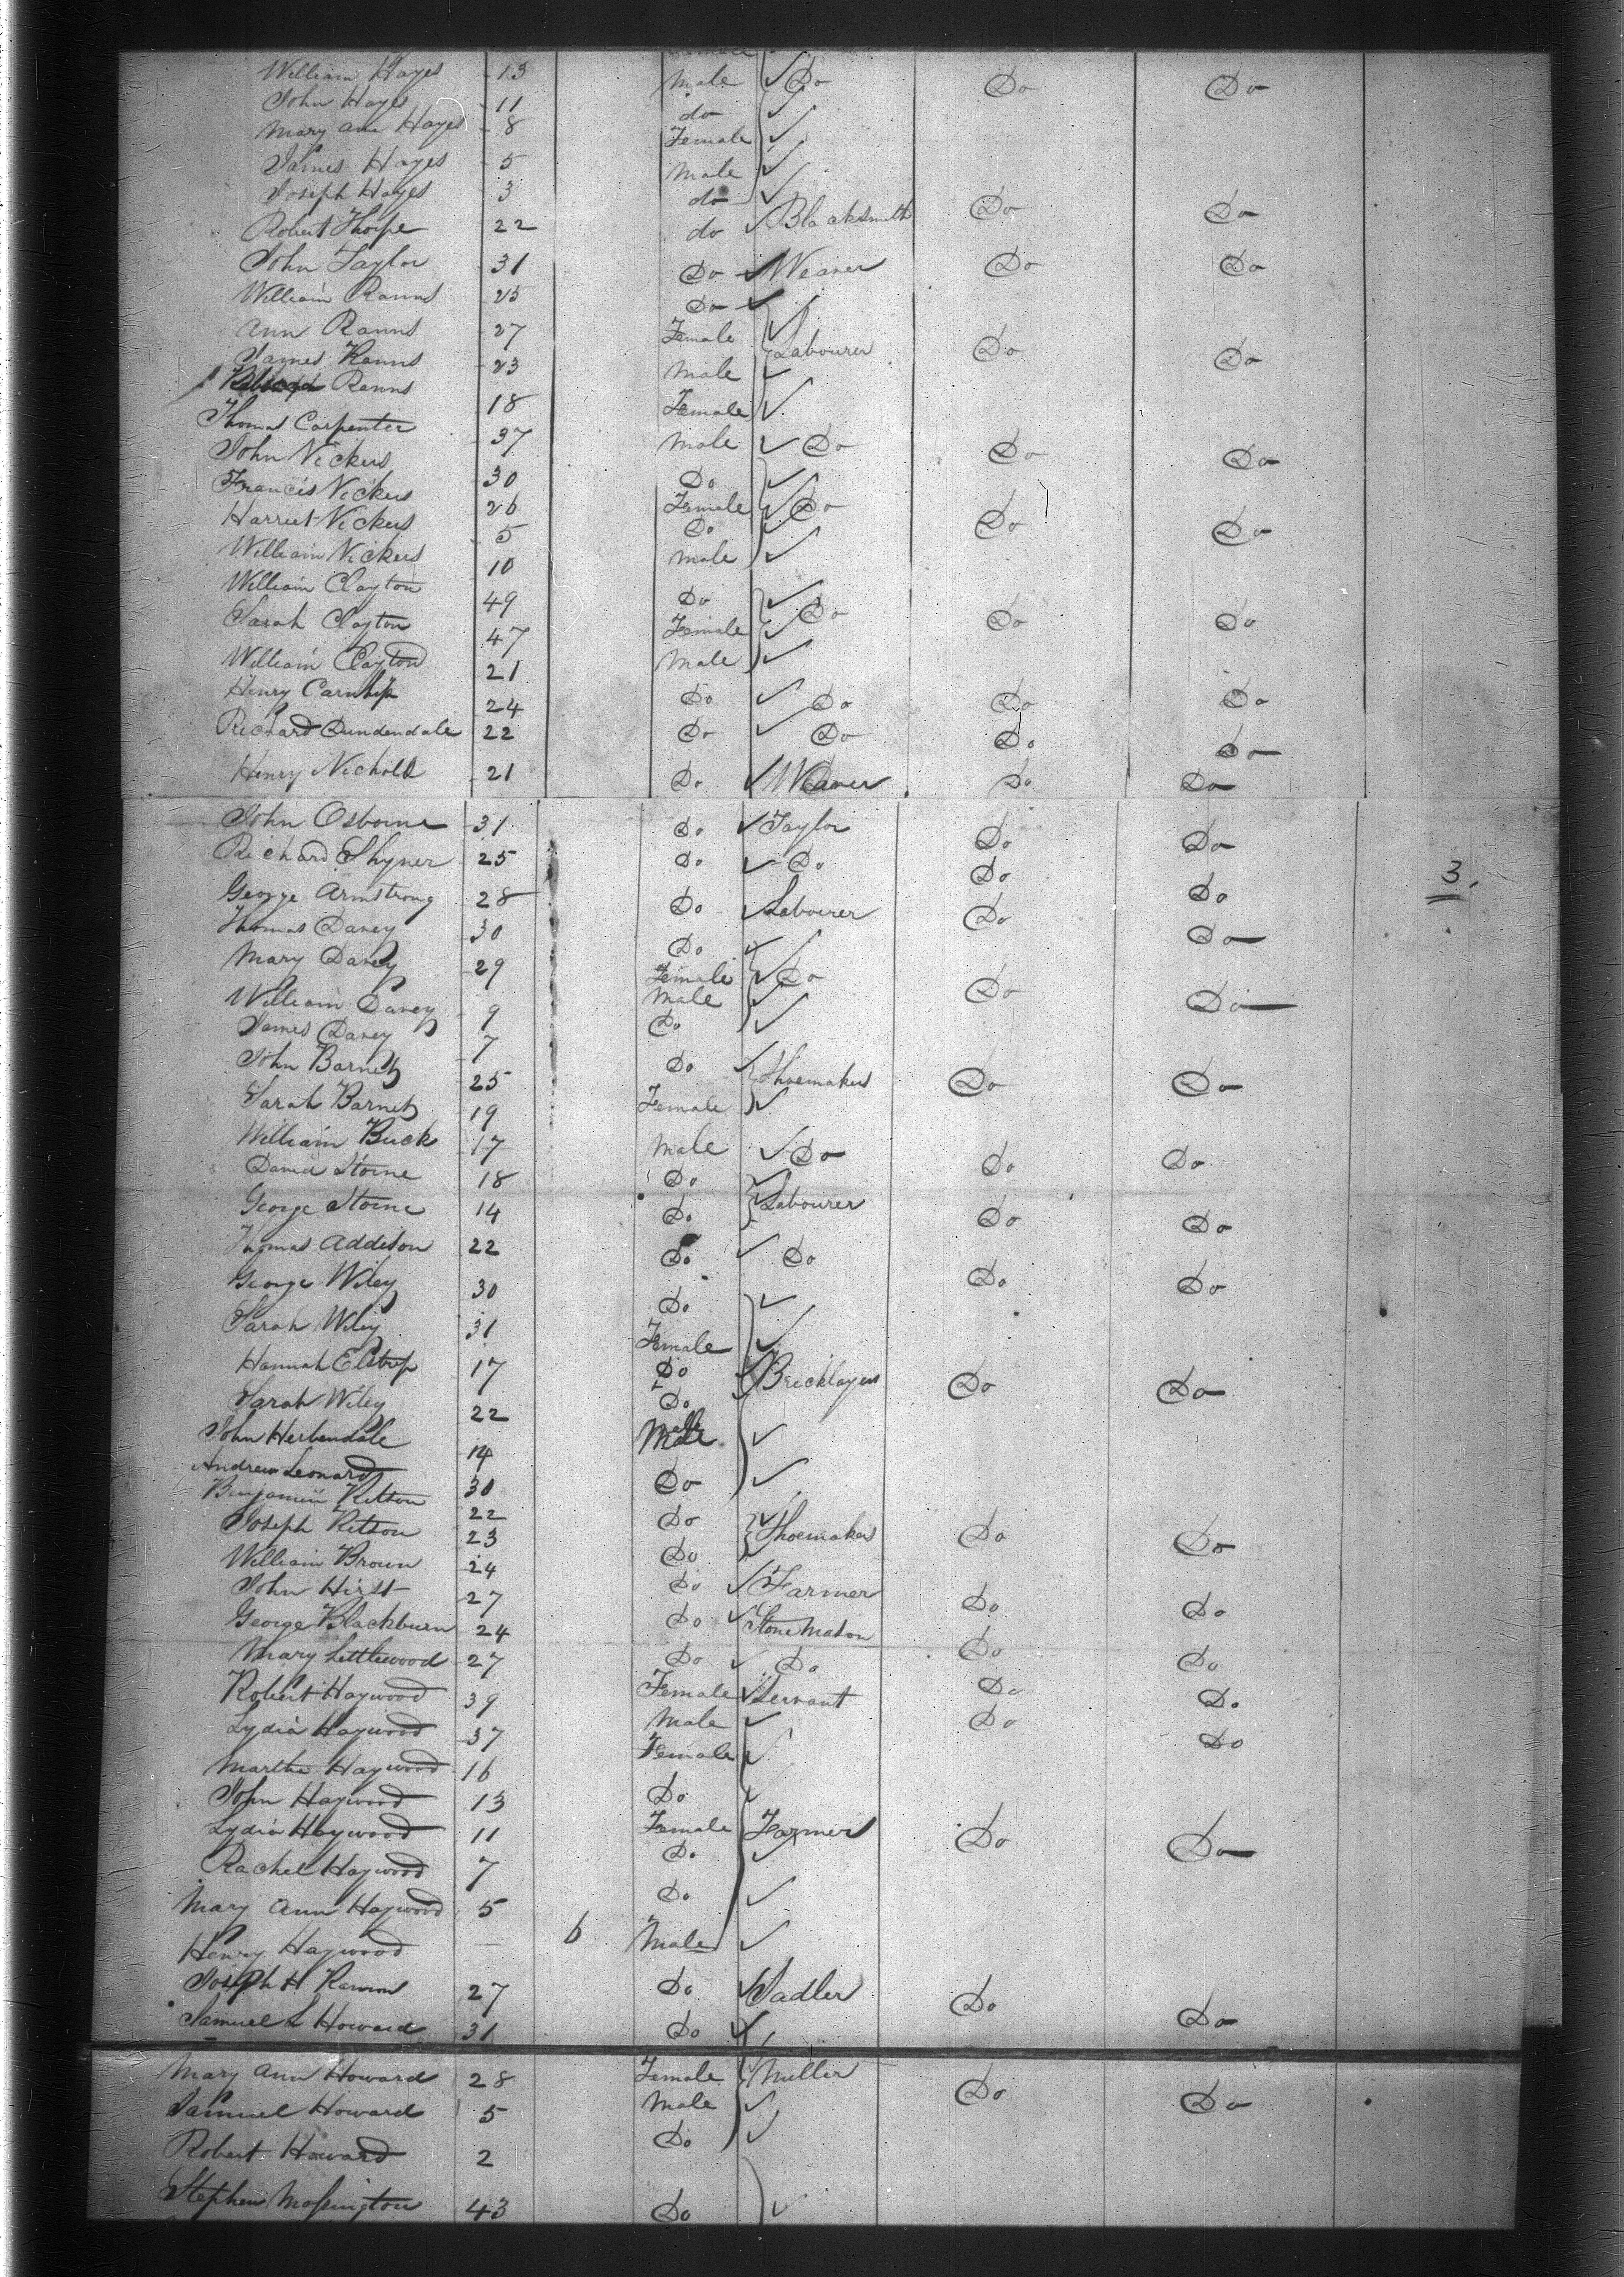 William Hayes 13 Male Do Do Do
John Hayes 11 do
Mary Ann Hayes 8 Female
James Hayes 5 Male
Joseph Hayes 3 do
Robert Thorpe 22 do Blacksmith Do Do
John Taylor 31 Do Weaver Do Do
William Ranns 25 Do
Ann Ranns 27 Female Labourer Do Do
James Ranns 23 Male
Ranns 18 Female
Thomas Carpenter 37 Male Do Do Do
John Vickers 30 Do
Francis Vickers 26 Female Do Do Do
Harriet Vickers 5 Do
William Vickers 10 Male
William Clayton 49 Do Do Do Do
Sarah Clayton 47 Female
William Clayton 21 Male
Henry 24 Do Do Do Do
Richard Dundendale 22 Do Do Do Do
Henry Nicholls 21 Do Weaver Do Do
John Osborne 31 Do Taylor Do Do
Richard Shyner 25 Do Do Do Do
3.
George Armstrong 28 Do Labourer Do Do
Thomas Davey 30 Do
Mary Davey 29 Female Do Do Do
William Davey 9 Male
James Davey 7 Do
John Barnet 25 Do Shoemakers Do Do
Sarah Barnet 19 Female
William Buck 17 Male Do Do Do
David Storne 18 Do Labourer Do Do
George Storne 14 Do
Thomas Addison 22 Do Do Do Do
George Wiley 30 Do
Sarah Wiley 31 Female
Hannah Elstrip 17 Do Bricklayers Do Do
Sarah Wiley 22 Do
John Herbendale 14 Male
Andrew Leonard 30 Do
Benjamin Kitson 22 Do Shoemakers Do Do
Joseph Kitson 23 Do
William Brown 24 Do Farmer Do Do
John Hirst 27 Do Stone Mason Do Do
George Blackburn 24 Do Do Do Do
Mary Littlewood 27 Female Servant Do Do
Robert Haywood 39 Male
Lydia Haywood 37 Female
Martha Haywood 16 Do
John Haywood 13 Female Farmers Do Do
Lydia Haywood 11 Do
Rachel Haywood 7 Do
Mary Ann Haywood 5
Henry Haywood — 6 Male
Joseph H 27 Do Sadler Do Do
Samuel L Howard 31 Do
Mary Ann Howard 28 Female Miller Do Do
Samuel Howard 5 Male
Robert Howard 2 Do
Stephen Mossington 43 Do